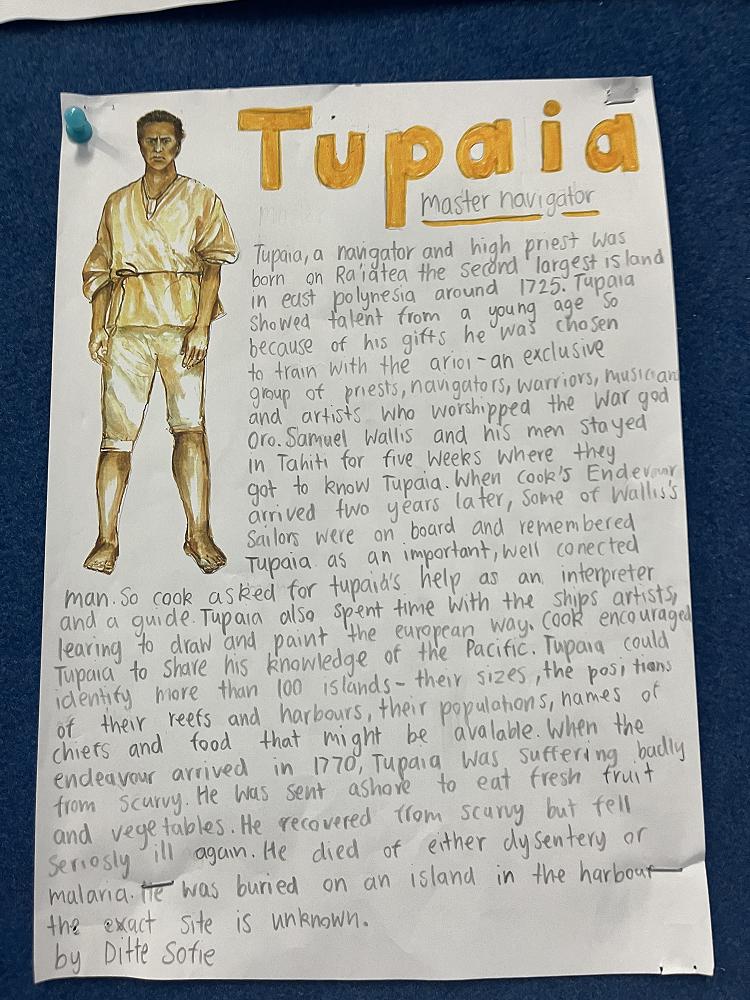 Tupaia
master navigator
Tupaia, a navigator and high priest was
born on Ra'iatea the second largest island
in east polynesia around 1725. Tupaia
showed talent from a young age so
because of his gifts he was chosen
to train with the arioi - an exclusive
group of priests, navigators, warriors, musician
and artists who worshipped the war god
Oro. Samuel Wallis and his men stayed
in Tahiti for five weeks where they
got to know Tupaia. When cook's Endevour
arrived two years later, some of Wallis's
sailors were on board and remembered
Tupaia as an important, well conected
man. So cook asked for tupaia's help as an interpreter
and a guide. Tupaia also spent time with the ships artists,
learing to draw and paint the european way. Cook encouraged
Tupaia to share his knowledge of the Pacific. Tupaia could
identify more than 100 islands - their sizes, the positions
of their reefs and harbours, their populations, names of
chiefs and food that might be avalable. When the
endeavour arrived in 1770, Tupaia was suffering badly
from scurvy. He was sent ashore to eat fresh fruit
and vegetables. He recovered from scurvy but fell
seriosly ill again. He died of either dysentery or
malaria. He was buried on an island in the harbour —
the exact site is unknown.
by Ditte Sofie